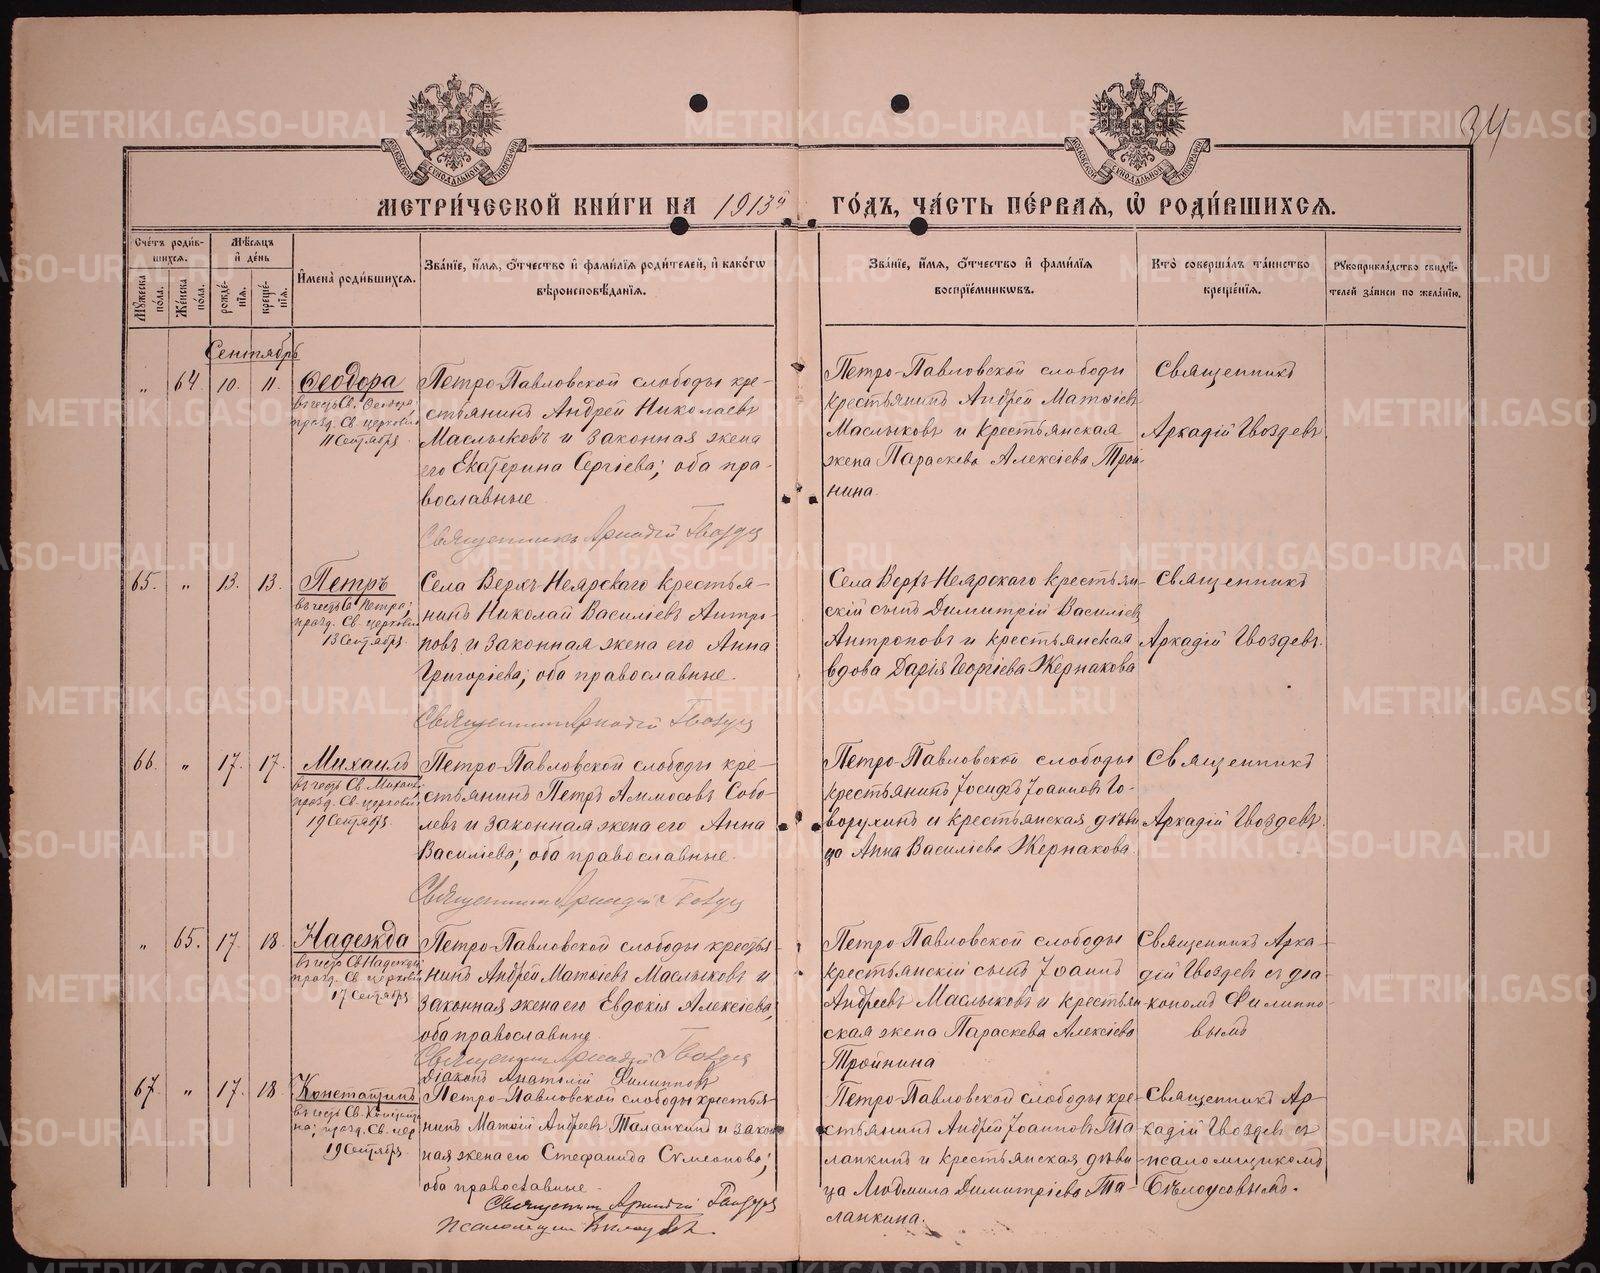 34
МЕТРИ́ЧЕСКОЙ КНИ́ГИ НА 1913й ГО́ДЪ, ЧА́СТЬ ПЕ́РВАЯ, Ѡ҆ РОДИ́ВШИХСѦ.
Сче́тъ роди́в-
шихсѧ.
Мѣ́сѧцъ
и҆ де́нь
Мꙋ́жеска по́ла.
Же́нска по́ла.
рожде́-
нїѧ.
креще́-
нїѧ.
И҆мена̀ роди́вшихсѧ.
Зва́нїе, и҆́мѧ, ѻ҆́тчество и҆ фами́лїѧ роди́телей, и҆ како́гѡ
вѣроисповѣ́данїѧ.
Зва́нїе, и҆́мѧ, ѻ҆́тчество и҆ фами́лїѧ
воспрїе́мникѡвъ.
Кто̀ соверша́лъ та́инство
креще́нїѧ.
Рꙋкоприкла́дство свидѣ́-
телей за́писи по жела́нїю.
Сентябрь
„ 64. 10. 11.
Ѳеодора
въ честь Св. Ѳеодоры;
празд. Св. церковію
11 Сентября.
Петро-Павловской слободы кре-
стьянинъ Андрей Николаевъ
Маслыковъ и законная жена
его Екатерина Сергіева; оба пра-
вославные.
Священникъ Аркадій Гвоздев
Петро-Павловской слободы
крестьянинъ Андрей Матѳіевъ
Маслыковъ и крестьянская
жена Параскева Алексіева Трой-
нина.
Священникъ
Аркадій Гвоздевъ.
65. „ 13. 13.
Петръ
въ честь Св. Петра;
празд. Св. церковію
13 Сентября.
Села Верхъ-Неярскаго крестья-
нинъ Николай Василіевъ Антро-
повъ и законная жена его Анна
Григоріева; оба православные.
Священникъ Аркадій Гвоздев
Села Верхъ-Неярскаго крестьян-
скій сынъ Димитрій Василіевъ
Антроповъ и крестьянская
вдова Дарія Георгіева Жернакова
Священникъ
Аркадій Гвоздевъ.
66. „ 17. 17.
Михаилъ
въ честь Св. Михаила;
празд. Св. церковію
19 Сентября.
Петро-Павловской слободы кре-
стьянинъ Петръ Аммосовъ Собо-
левъ и законная жена его Анна
Василіева; оба православные.
Священникъ Аркадій Гвоздев
Петро-Павловской слободы
крестьянинъ Іосифъ Іоанновъ Го-
ворухинъ и крестьянская дѣви-
ца Анна Василіева Жернакова.
Священникъ
Аркадій Гвоздевъ.
„ 65. 17. 18.
Надежда
въ честь Св. Надежды;
празд. Св. церковію
17 Сентября
Петро-Павловской слободы крестья-
нинъ Андрей Матѳіевъ Маслыковъ и
законная жена его Евдокія Алексіева;
оба православные.
Священникъ Аркадій Гвоздев
Діаконъ Анатолій Филипповъ
Петро-Павловской слободы
крестьянскій сынъ Іоаннъ
Андреевъ Маслыковъ и крестьян-
ская жена Параскева Алексіева
Тройнина
Священникъ Арка-
дій Гвоздевъ съ діа-
кономъ Филиппо-
вымъ
67. „ 17. 18.
Константинъ
въ честь Св. Константи-
на; празд. Св. цер.
19 Сентября.
Петро-Павловской слободы крестья-
нинъ Матѳій Андреевъ Таланкинъ и закон-
ная жена его Стефанида Сѵмеонова;
оба православные.
Священникъ Аркадій Гвоздев
Псаломщикъ Бѣлоусовъ.
Петро-Павловской слободы кре-
стьянинъ Андрей Іоанновъ Та-
ланкинъ и крестьянская дѣви-
ца Людмила Димитріева Та-
ланкина.
Священникъ Ар-
кадій Гвоздевъ съ
псаломщикомъ
Бѣлоусовымъ.
METRIKI.GASO-URAL.RU